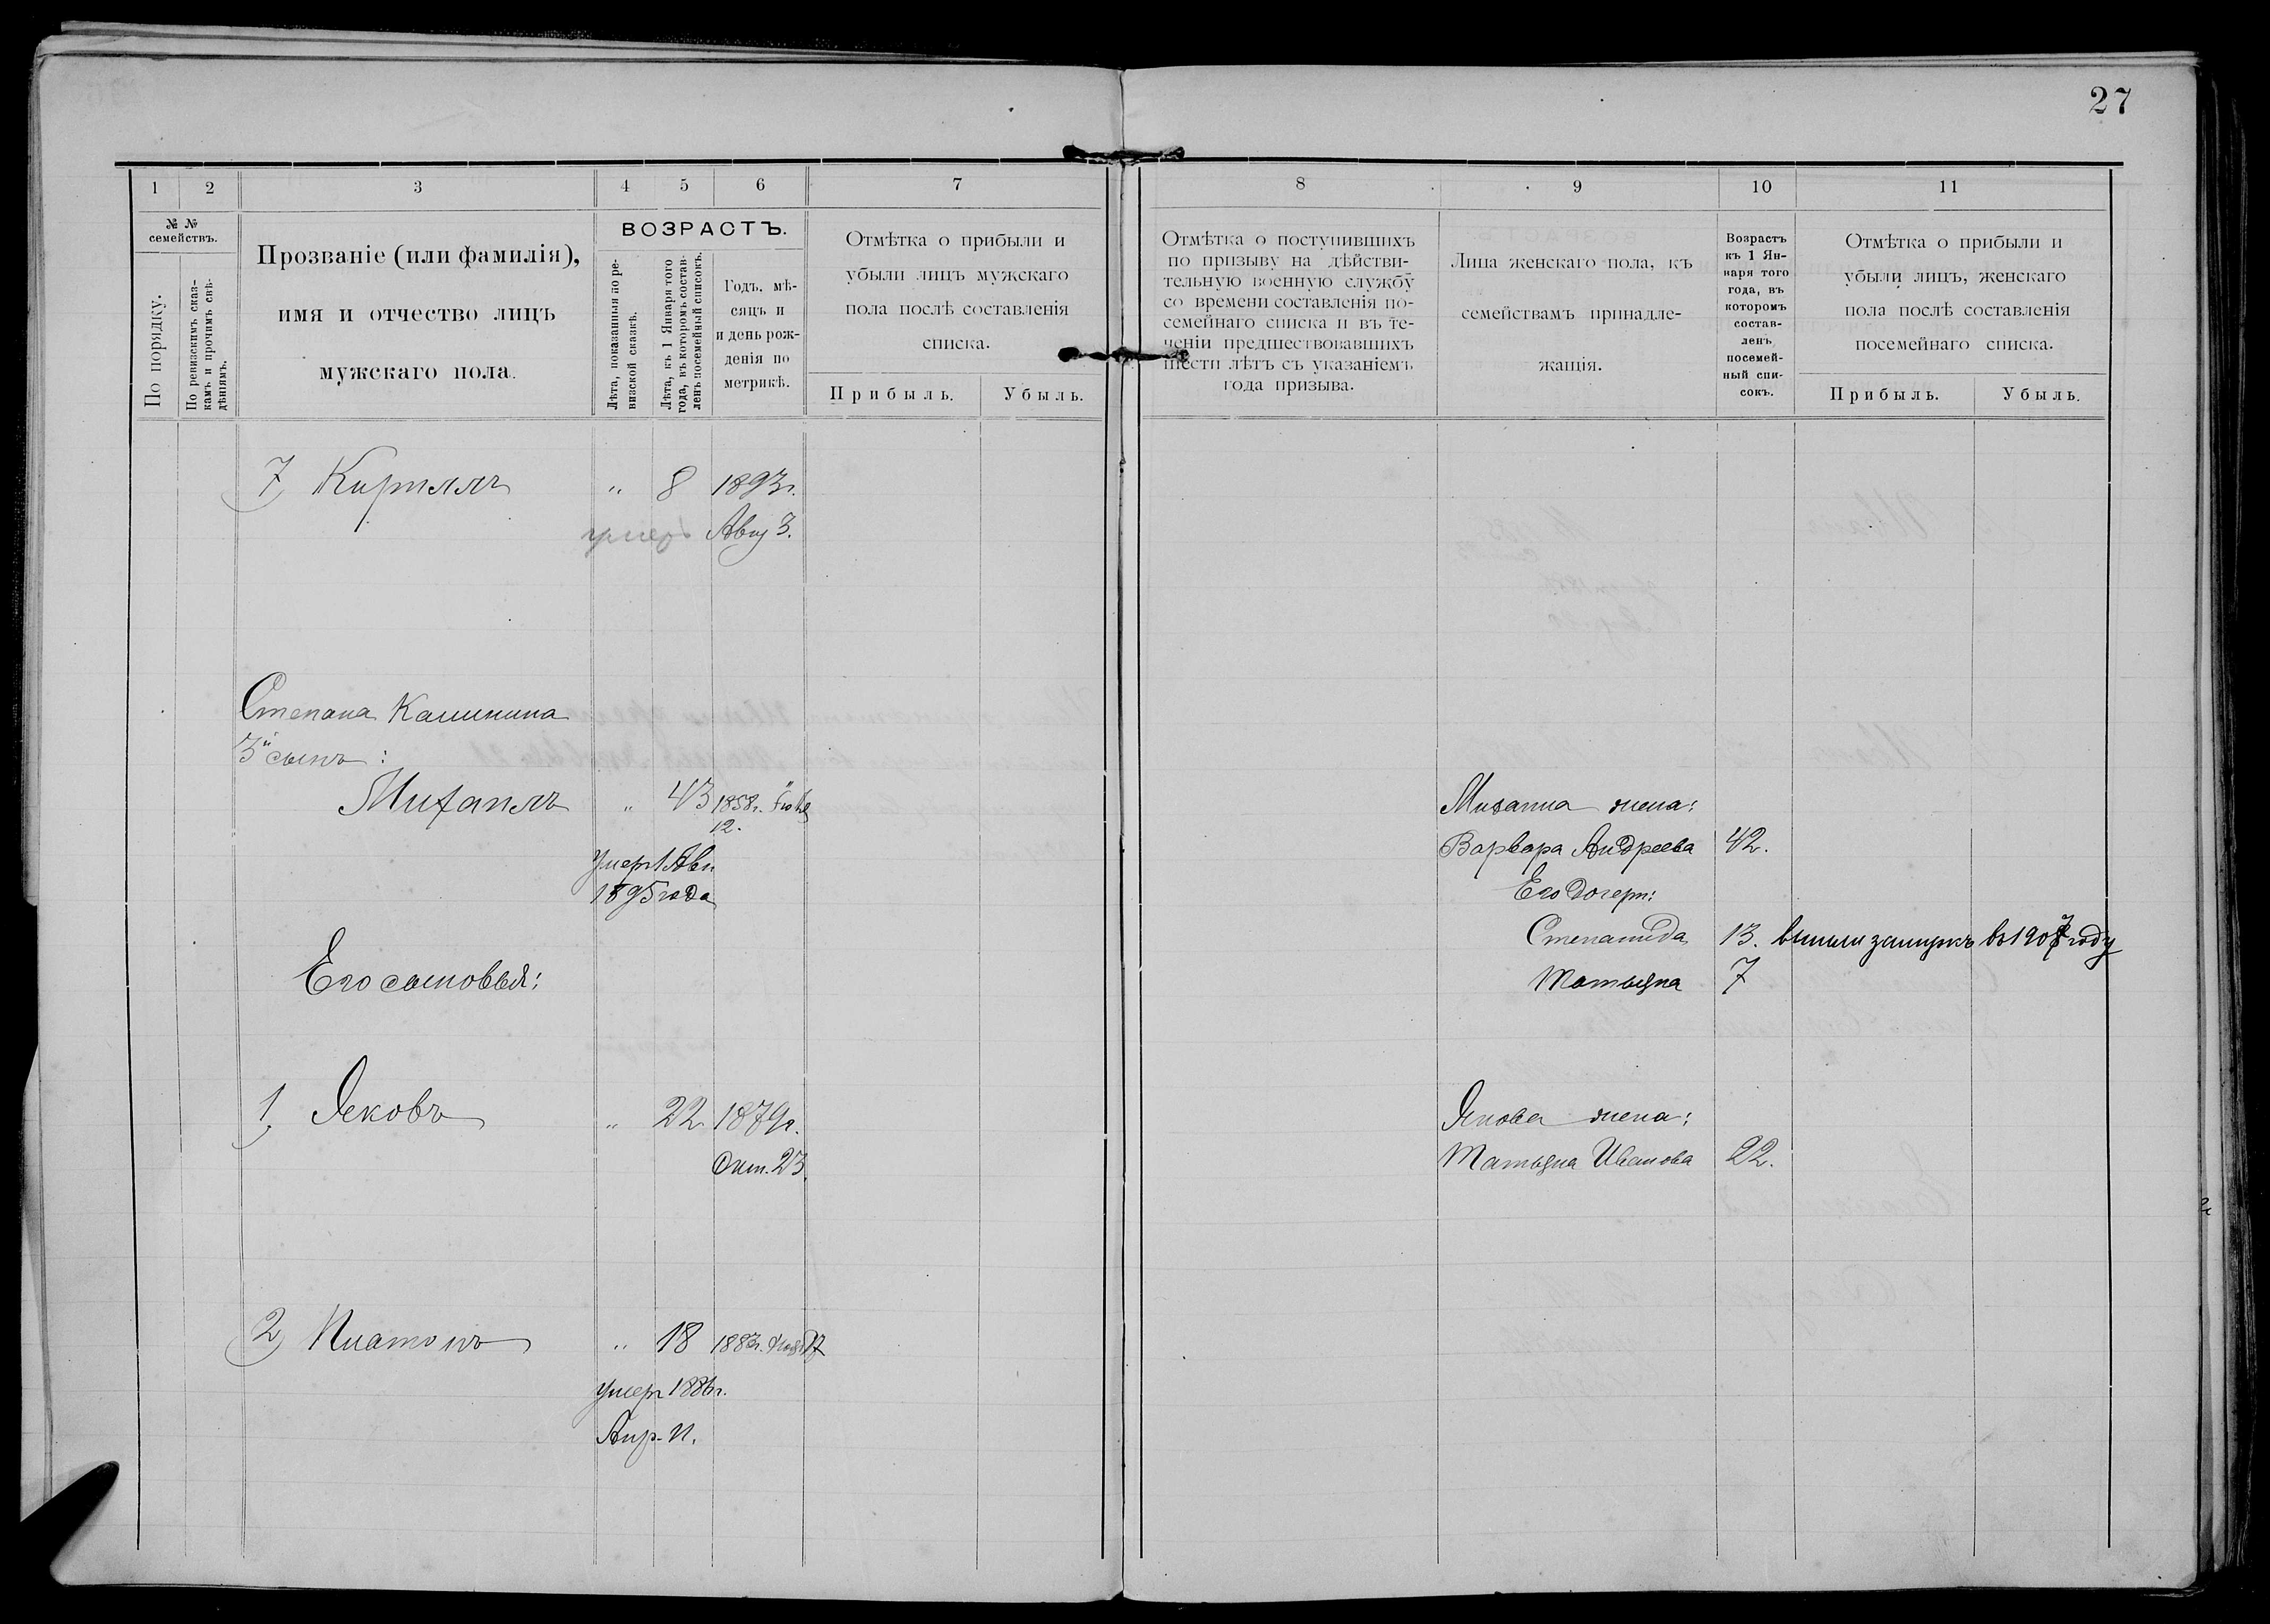 27
1 2 3 4 5 6 7
№ №
семействъ.
По порядку.
По ревизскимъ сказ-
камъ и прочимъ свѣ-
дѣніямъ.
Прозваніе (или фамилія),
имя и отчество лицъ
мужскаго пола.
ВОЗРАСТЪ.
Лѣта, показанныя по ре-
визской сказкѣ.
Лѣта, къ 1 Января того
года, въ которомъ состав-
ленъ посемейный списокъ.
Годъ, мѣ-
сяцъ и
и день рож-
денія по
метрикѣ.
Отмѣтка о прибыли и
убыли лицъ мужскаго
пола послѣ составленія
списка.
Прибыль. Убыль.
7) Кириллъ " 8 1893 г.
умеръ Авг 3.
Степана Калинина
3й сынъ:
Михаилъ " 43 1858 г.
12.
Умеръ 1 Авг.
1895 года
Его сыновья:
1) Яковъ " 22 1879 г.
Окт. 23.
2) Платонъ " 18 1883 г.
Умеръ 1886 г.
Апр. 11.
8 9 10 11
Отмѣтка о поступившихъ
по призыву на дѣйстви-
тельную военную службу
со времени составленія по-
семейнаго списка и въ те-
ченіи предшествовавшихъ
шести лѣтъ съ указаніемъ
года призыва.
Лица женскаго пола, къ
семействамъ принадле-
жащія.
Возрастъ
къ 1 Ян-
варя того
года, въ
которомъ
состав-
ленъ
посемей-
ный спи-
сокъ.
Отмѣтка о прибыли и
убыли лицъ, женскаго
пола послѣ составленія
посемейнаго списка.
Прибыль. Убыль.
Михаила жена:
Варвара Андреева 42.
Его дочери:
Степанида 13. вышла замужъ въ 1907 году
Татьяна 7
Якова жена:
Татьяна Иванова 22.